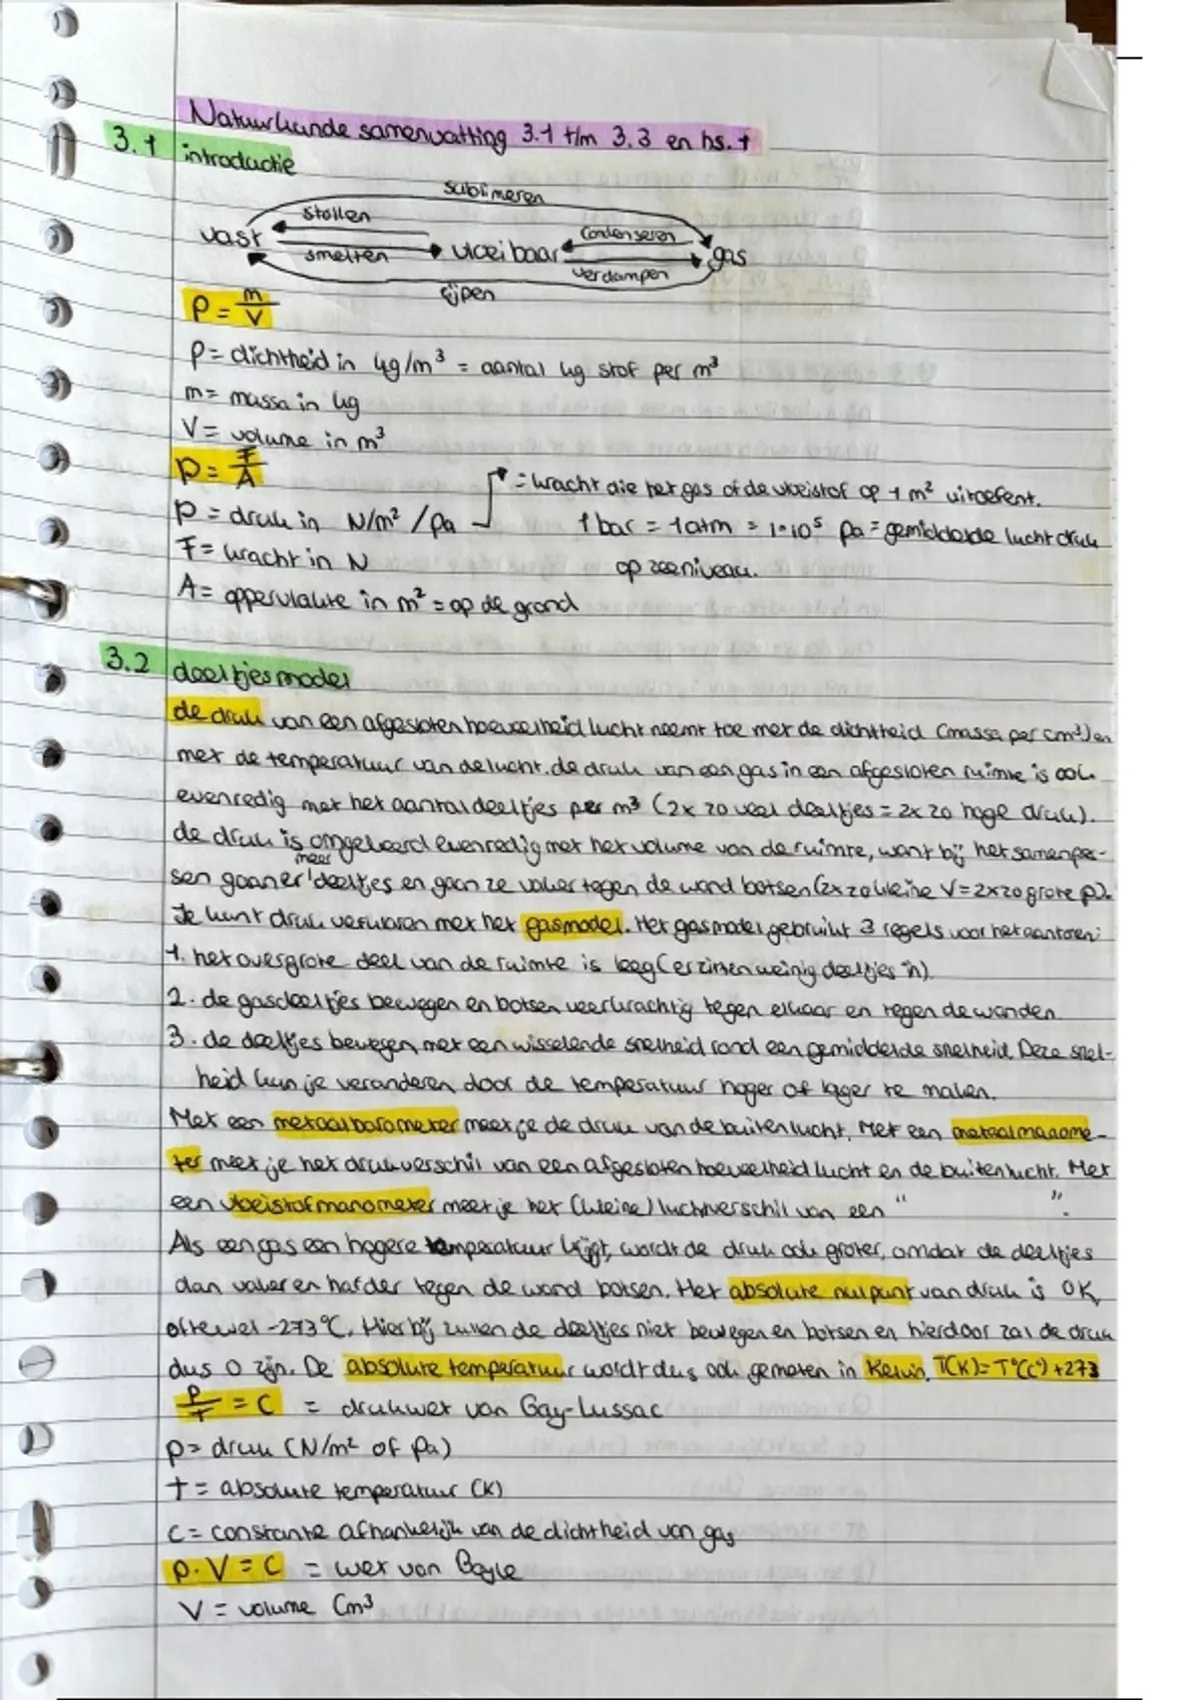 Natuurkunde samenvatting 3.1 t/m 3.3 en hs. 1
3.1 introductie
sublimeren
stollen
condenseren
vast
vloeibaar
gas
smelten
verdampen
rijpen
ρ = m/V
ρ = dichtheid in kg/m³ = aantal kg stof per m³
m = massa in kg
V = volume in m³
p = F/A
= kracht die het gas of de vloeistof op 1 m² uitoefent.
p = druk in N/m² / pa
1 bar = 1 atm = 1·10⁵ pa = gemiddelde luchtdruk
F = kracht in N
op zeeniveau.
A = oppervlakte in m² = op de grond
3.2 deeltjesmodel
de druk van een afgesloten hoeveelheid lucht neemt toe met de dichtheid (massa per cm³) en
met de temperatuur van de lucht. de druk van een gas in een afgesloten ruimte is ook
evenredig met het aantal deeltjes per m³ (2x zo veel deeltjes = 2x zo hoge druk).
de druk is omgekeerd evenredig met het volume van de ruimte, want bij het samenper-
meer
sen gaan er deeltjes en gaan ze vaker tegen de wand botsen (2x zo kleine V = 2x zo grote p).
Je kunt druk verklaren met het gasmodel. Het gasmodel gebruikt 3 regels voor het aantonen:
1. het overgrote deel van de ruimte is leeg (er zitten weinig deeltjes in).
2. de gasdeeltjes bewegen en botsen veerkrachtig tegen elkaar en tegen de wanden.
3. de deeltjes bewegen met een wisselende snelheid rond een gemiddelde snelheid. Deze snel-
heid kun je veranderen door de temperatuur hoger of lager te maken.
Met een metaalbarometer meet je de druk van de buitenlucht. Met een metaalmanome-
ter meet je het drukverschil van een afgesloten hoeveelheid lucht en de buitenlucht. Met
een vloeistofmanometer meet je het (kleine) luchtverschil van een " ".
Als een gas een hogere temperatuur krijgt, wordt de druk ook groter, omdat de deeltjes
dan vaker en harder tegen de wand botsen. Het absolute nulpunt van druk is 0K,
oftewel -273°C. Hierbij zullen de deeltjes niet bewegen en botsen en hierdoor zal de druk
dus 0 zijn. De absolute temperatuur wordt dus ook gemeten in Kelvin. T(K) = T°(C°) + 273
p/T = C = drukwet van Gay-Lussac
p = druk (N/m² of Pa)
T = absolute temperatuur (K)
C = constante afhankelijk van de dichtheid van gas
p · V = C = wet van Boyle
V = volume (m³